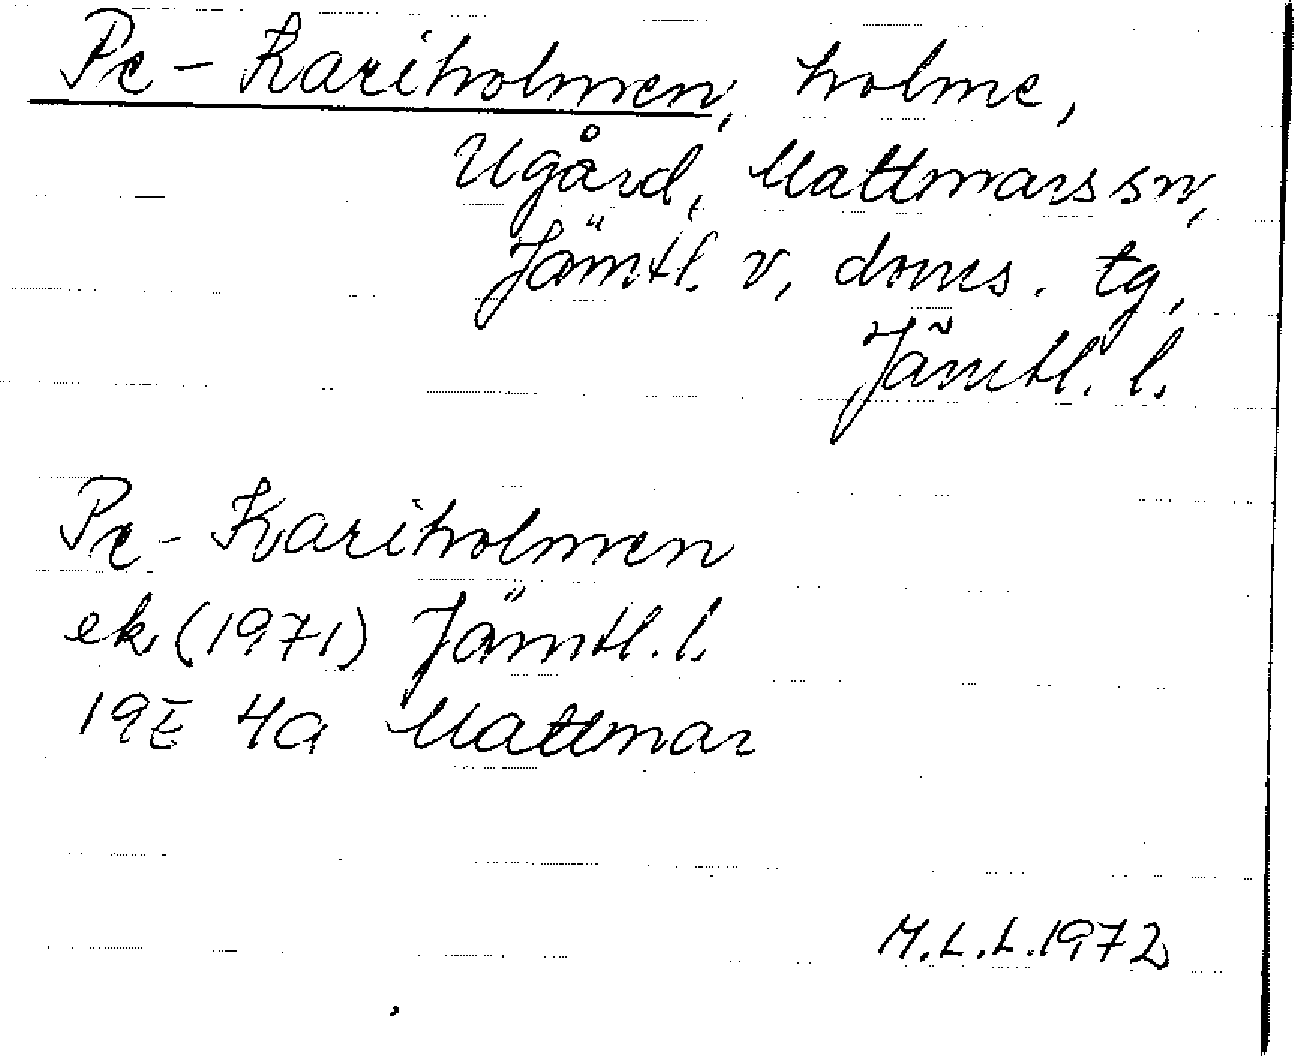 Pe-Kariholmen, holme,
Ugård, Mattmars sn,
Jämtl. v. doms. tg,
Jämtl. l.
Pe-Kariholmen
ek (1971) Jämtl. l.
19E 4a Mattmar
M.L.L. 1972